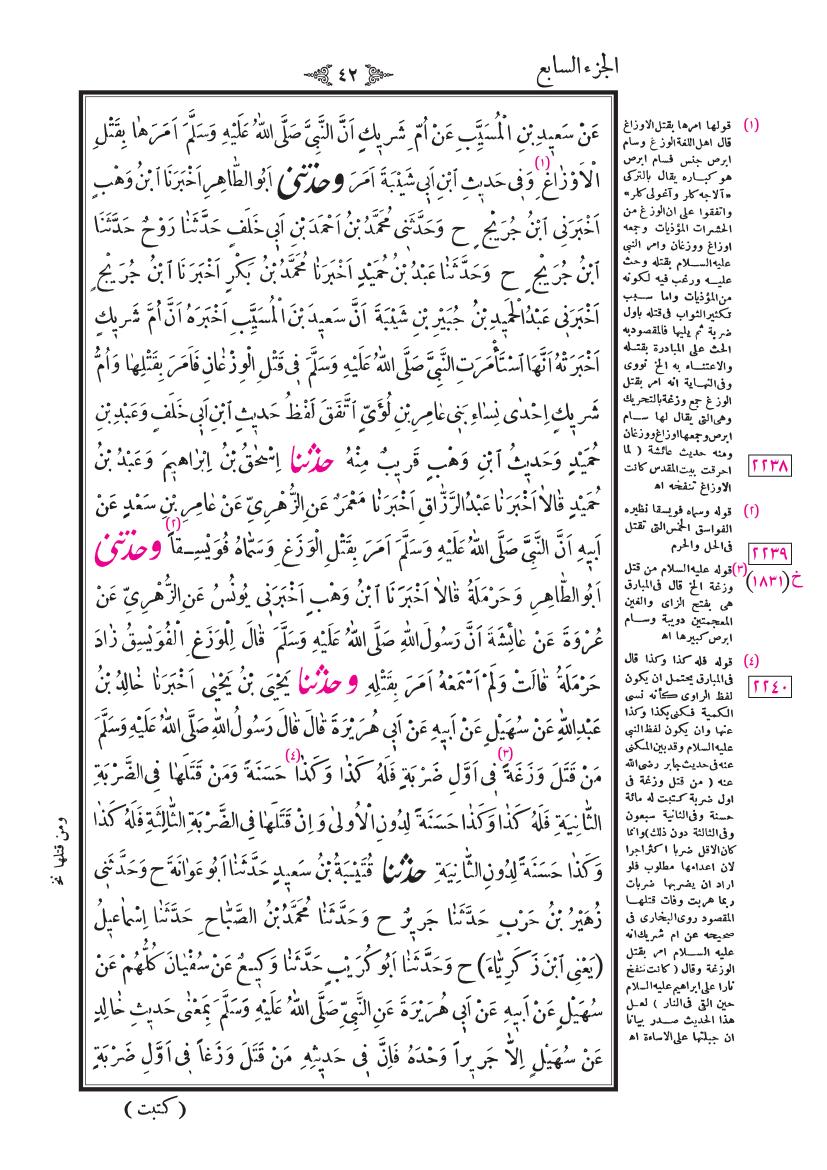 الجزء السابع
٤٢
عَنْ سَعِيدِ بْنِ الْمُسَيَّبِ عَنْ أُمِّ شَرِيكٍ اَنَّ النَّبِيَّ صَلَّى اللّٰهُ عَلَيْهِ وَسَلَّمَ اَمَرَهَا بِقَتْلِ
الْاَوْزَاغِ (١) وَفِي حَدِيثِ ابْنِ اَبِي شَيْبَةَ اَمَرَ وحدثنى اَبُو الطَّاهِرِ اَخْبَرَنَا ابْنُ وَهْبٍ
اَخْبَرَنِى ابْنُ جُرَيْجٍ ح وَحَدَّثَنِى مُحَمَّدُ بْنُ اَحْمَدَ بْنِ اَبِي خَلَفٍ حَدَّثَنَا رَوْحٌ حَدَّثَنَا
ابْنُ جُرَيْجٍ ح وَحَدَّثَنَا عَبْدُ بْنُ حُمَيْدٍ اَخْبَرَنَا مُحَمَّدُ بْنُ بَكْرٍ اَخْبَرَنَا ابْنُ جُرَيْجٍ
اَخْبَرَنِى عَبْدُ الْحَمِيدِ بْنُ جُبَيْرِ بْنِ شَيْبَةَ اَنَّ سَعِيدَ بْنَ الْمُسَيَّبِ اَخْبَرَهُ اَنَّ اُمَّ شَرِيكٍ
اَخْبَرَتْهُ اَنَّهَا اسْتَأْمَرَتِ النَّبِيَّ صَلَّى اللّٰهُ عَلَيْهِ وَسَلَّمَ فِى قَتْلِ الْوِزْغَانِ فَاَمَرَ بِقَتْلِهَا وَاُمُّ
شَرِيكٍ اِحْدٰى نِسَاءِ بَنِى عَامِرِ بْنِ لُؤَيٍّ اتَّفَقَ لَفْظُ حَدِيثِ ابْنِ اَبِى خَلَفٍ وَعَبْدِ بْنِ
حُمَيْدٍ وَحَدِيثُ ابْنِ وَهْبٍ قَرِيبٌ مِنْهُ حدثنا اِسْحٰقُ بْنُ اِبْرَاهِيمَ وَعَبْدُ بْنُ
حُمَيْدٍ قَالَا اَخْبَرَنَا عَبْدُ الرَّزَّاقِ اَخْبَرَنَا مَعْمَرٌ عَنِ الزُّهْرِيِّ عَنْ عَامِرِ بْنِ سَعْدٍ عَنْ
اَبِيهِ اَنَّ النَّبِيَّ صَلَّى اللّٰهُ عَلَيْهِ وَسَلَّمَ اَمَرَ بِقَتْلِ الْوَزَغِ وَسَمَّاهُ فُوَيْسِقاً (٢) وحدثنى
اَبُو الطَّاهِرِ وَحَرْمَلَةُ قَالَا اَخْبَرَنَا ابْنُ وَهْبٍ اَخْبَرَنِى يُونُسُ عَنِ الزُّهْرِيِّ عَنْ
عُرْوَةَ عَنْ عَائِشَةَ اَنَّ رَسُولَ اللّٰهِ صَلَّى اللّٰهُ عَلَيْهِ وَسَلَّمَ قَالَ لِلْوَزَغِ الْفُوَيْسِقُ زَادَ
حَرْمَلَةُ قَالَتْ وَلَمْ اَسْمَعْهُ اَمَرَ بِقَتْلِهِ وحدثنا يَحْيَى بْنُ يَحْيٰى اَخْبَرَنَا خَالِدُ بْنُ
عَبْدِ اللّٰهِ عَنْ سُهَيْلٍ عَنْ اَبِيهِ عَنْ اَبِى هُرَيْرَةَ قَالَ قَالَ رَسُولُ اللّٰهِ صَلَّى اللّٰهُ عَلَيْهِ وَسَلَّمَ
مَنْ قَتَلَ وَزَغَةً (٣) فِى اَوَّلِ ضَرْبَةٍ فَلَهُ كَذَا وَكَذَا (٤) حَسَنَةً وَمَنْ قَتَلَهَا فِى الضَّرْبَةِ
الثَّانِيَةِ فَلَهُ كَذَا وَكَذَا حَسَنَةً لِدُونِ الْاُولىٰ وَاِنْ قَتَلَهَا فِى الضَّرْبَةِ الثَّالِثَةِ فَلَهُ كَذَا
وَكَذَا حَسَنَةً لِدُونِ الثَّانِيَةِ حدثنا قُتَيْبَةُ بْنُ سَعِيدٍ حَدَّثَنَا اَبُو عَوَانَةَ ح وَحَدَّثَنِى
زُهَيْرُ بْنُ حَرْبٍ حَدَّثَنَا جَرِيرٌ ح وَحَدَّثَنَا مُحَمَّدُ بْنُ الصَّبَّاحِ حَدَّثَنَا اِسْمَاعِيلُ
(يَعْنِى ابْنَ زَكَرِيَّاءَ) ح وَحَدَّثَنَا اَبُو كُرَيْبٍ حَدَّثَنَا وَكِيعٌ عَنْ سُفْيَانَ كُلُّهُمْ عَنْ
سُهَيْلٍ عَنْ اَبِيهِ عَنْ اَبِى هُرَيْرَةَ عَنِ النَّبِيِّ صَلَّى اللّٰهُ عَلَيْهِ وَسَلَّمَ بِمَعْنٰى حَدِيثِ خَالِدٍ
عَنْ سُهَيْلٍ اِلَّا جَرِيراً وَحْدَهُ فَاِنَّ فِى حَدِيثِهِ مَنْ قَتَلَ وَزَغاً فِى اَوَّلِ ضَرْبَةٍ
( كتبت )
ومن قتلها نخ
(١) قولها امرها بقتل الاوزاغ
قال اهل اللغة الوزغ وسام
ابرص جنس فسام ابرص
هو كباره يقال بالتركى
«آلاجه كلر وآغولى كلر»
واتفقوا على ان الوزغ من
الحشرات المؤذيات وجمعه
اوزاغ ووزغان وامر النبى
عليه السلام بقتله وحث
عليه ورغب فيه لكونه
من المؤذيات واما سبب
تكثير الثواب فى قتله باول
ضربة ثم يليها فالمقصود به
الحث على المبادرة بقتله
والاعتناء به الخ نووى
وفى النهاية انه امر بقتل
الوزغ جمع وزغة بالتحريك
وهى التى يقال لها سام
ابرص وجمعها اوزاغ ووزغان
ومنه حديث عائشة ( لما
احرقت بيت المقدس كانت
الاوزاغ تنفخه اه
(٢) قوله وسماه فويسقا نظيره
الفواسق الخمس التى تقتل
فى الحل والحرم
(٣) قوله عليه السلام من قتل
وزغة الخ قال فى المبارق
هى بفتح الزاى والغين
المعجمتين دويبة وسام
ابرص كبيرها اه
(٤) قوله فله كذا وكذا قال
فى المبارق يحتمل ان يكون
لفظ الراوى كأنه نسى
الكمية فكنى بكذا وكذا
عنها وان يكون لفظ النبى
عليه السلام وقد بين المكنى
عنه فى حديث جابر رضى الله
عنه ( من قتل وزغة فى
اول ضربة كتبت له مائة
حسنة وفى الثانية سبعون
وفى الثالثة دون ذلك) وانما
كان الاقل ضربا اكثر اجرا
لان اعدامها مطلوب فلو
اراد ان يضربها ضربات
ربما هربت وفات قتلها
المقصود روى البخارى فى
صحيحه عن ام شريك انه
عليه السلام امر بقتل
الوزغة وقال ( كانت تنفخ
نارا على ابراهيم عليه السلام
حين التى فى النار ) لعل
هذا الحديث صدر بيانا
ان جبلتها على الاساءة اه
٢٢٣٨
٢٢٣٩
خ (١٨٣١)
٢٢٤٠